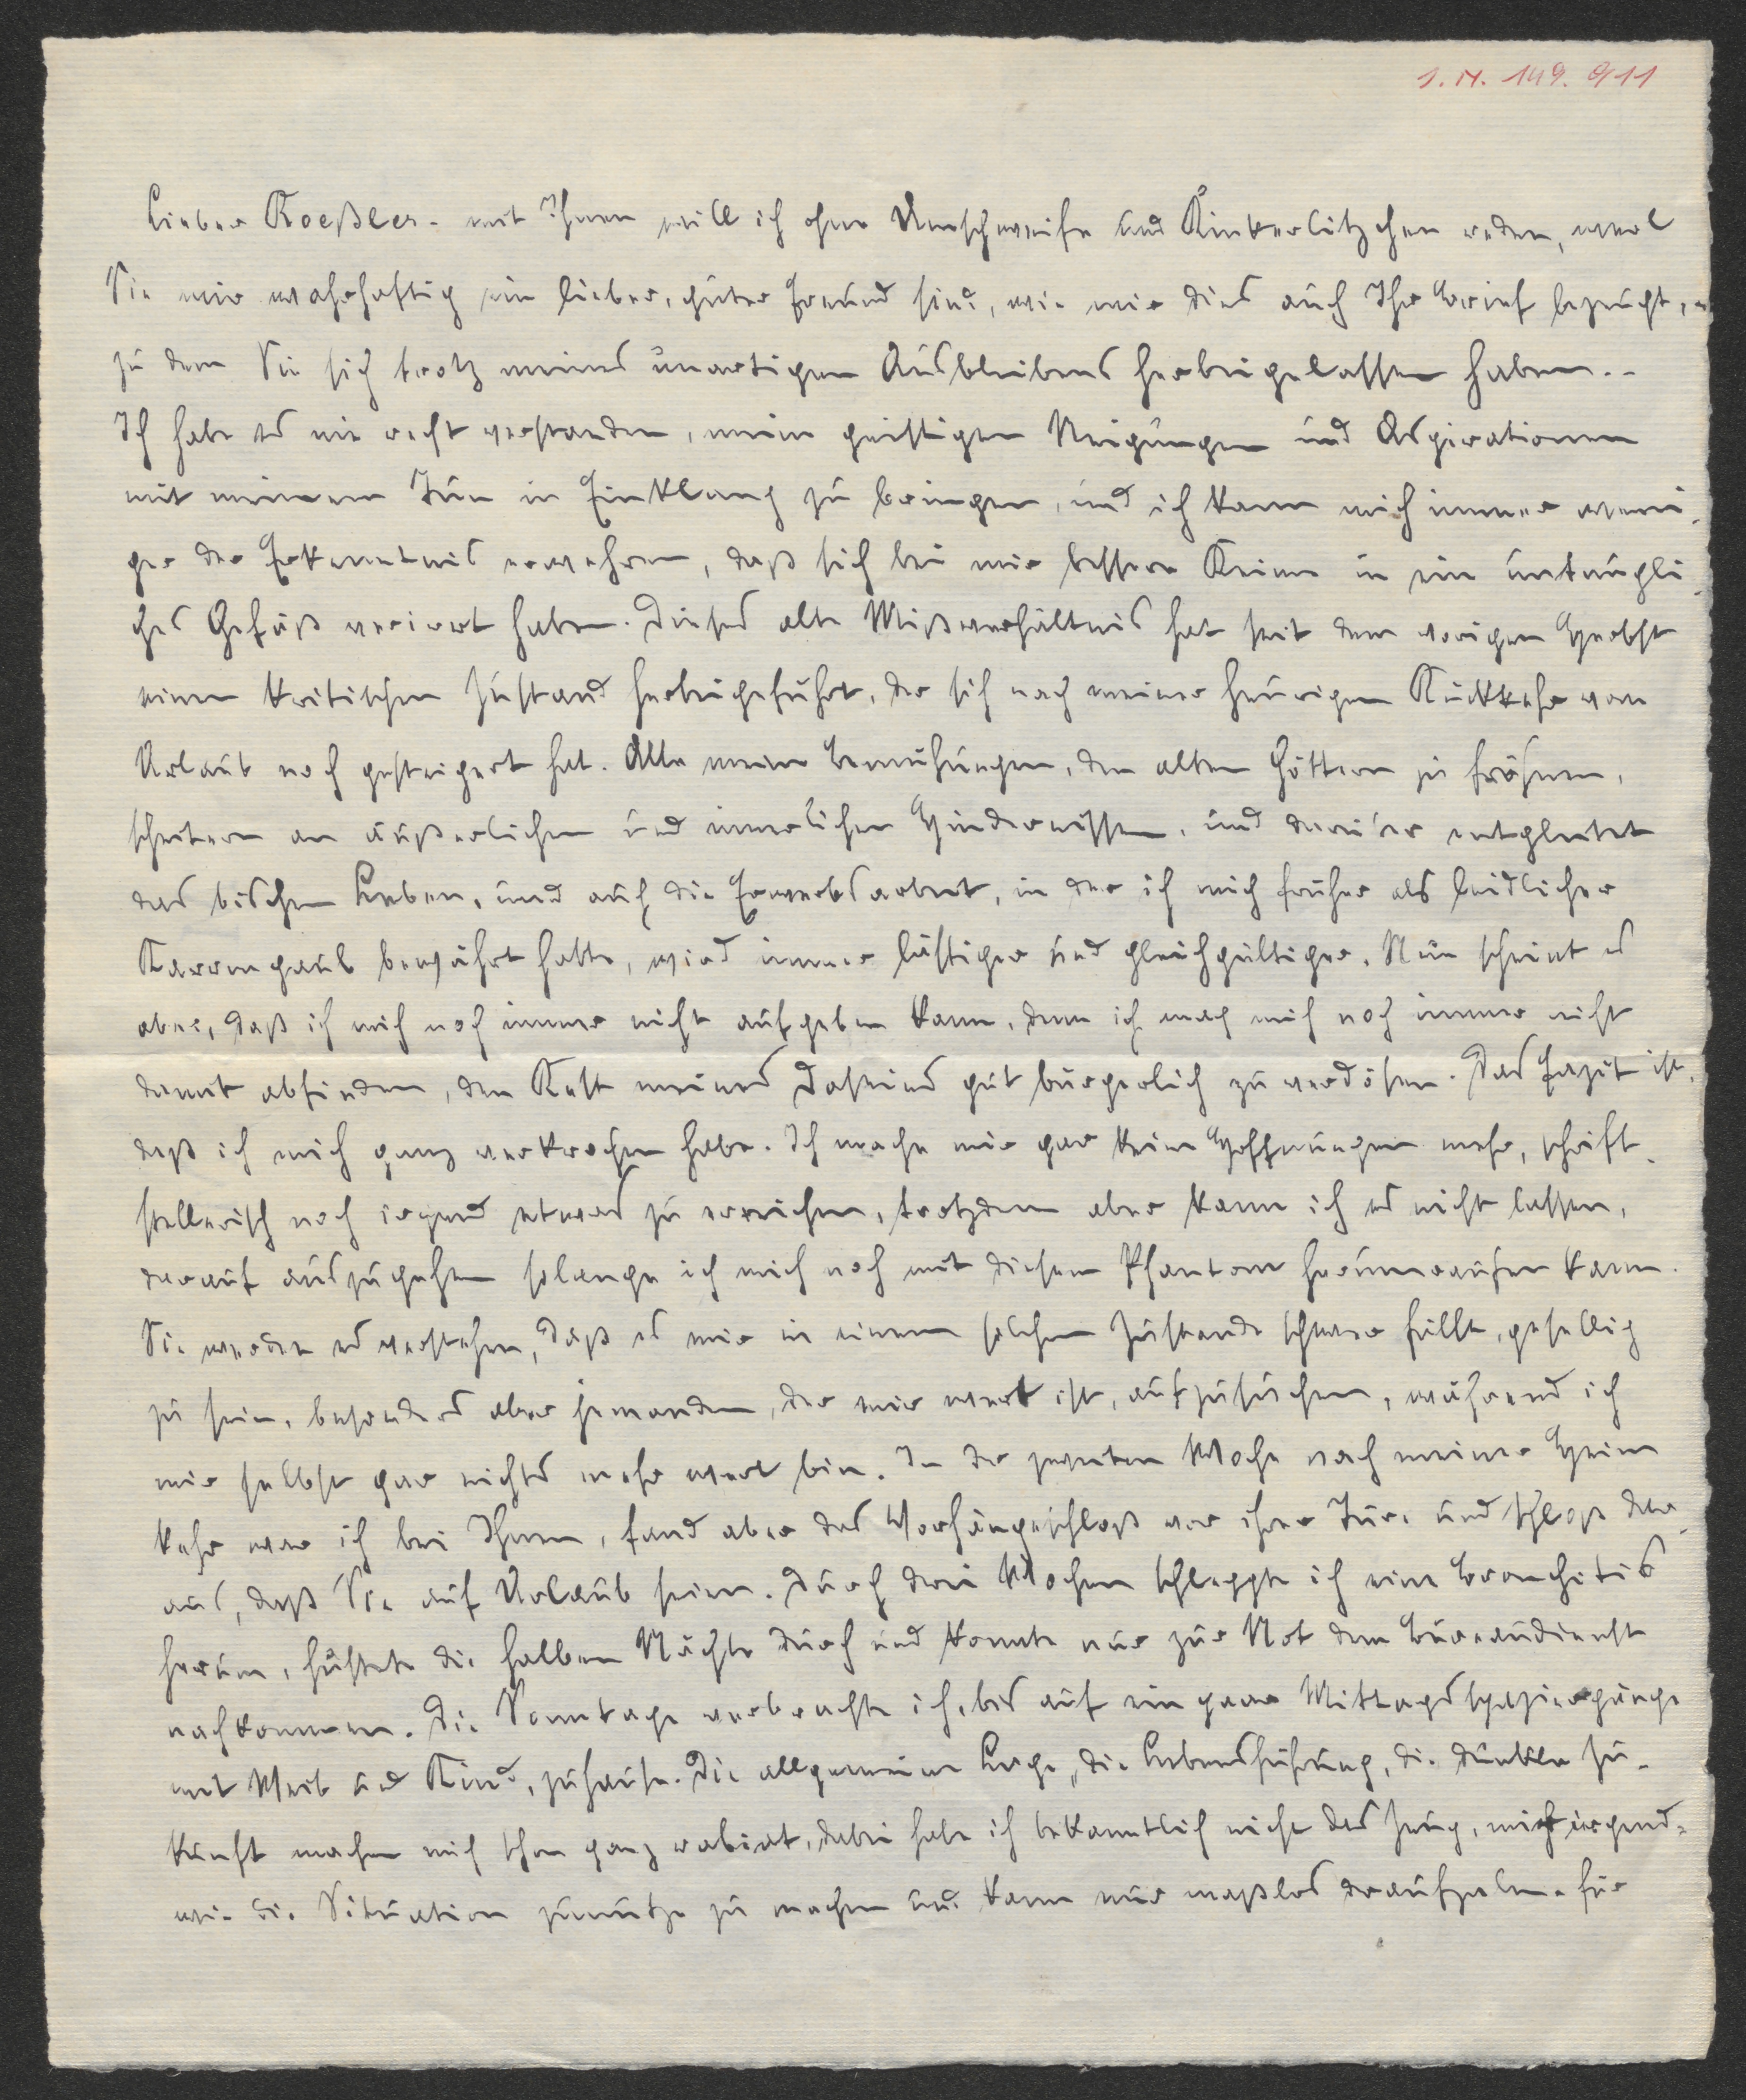 I. N. 149.911
Lieber Roeßler. mit Ihnen will ich ohne Umschweife und Kinkerlitzchen reden, weil
Sie mir wahrhaftig ein lieber, guter Freund sind, wie mir dies auch Ihr Brief bezeugt,
zu dem Sie sich trotz meines unartigen Ausbleibens herbeigelassen haben. -
Ich habe es nie recht verstanden, meine geistigen Neigungen und Aspirationen
mit meinem Tun in Einklang zu bringen, und ich kann mich immer weni-
ger der Erkenntnis erwehren, daß sich bei mir bessere Keime in ein untaugli-
ches Gefäß verirrt haben. Dieses alte Mißverhältnis hat seit dem vorigen Herbst
einen kritischen Zustand herbeigeführt, der sich nach meiner heurigen Rückkehr vom
Urlaub noch gesteigert hat. Alle meine Bemühungen, den alten Göttern zu fröhnen,
scheitern an äußerlichen und innerlichen Hindernissen, und darüber entgleitet
das bischen Leben, und auch die Erwerbsarbeit, in der ich mich früher als leidlicher
Karrengaul bewährt hatte, wird immer lästiger und gleichgültiger. Nun scheint es
aber, daß ich mich noch immer nicht aufgeben kann, denn ich mag mich noch immer nicht
damit abfinden, den Rest meines Daseins gut bürgerlich zu verdösen. Das Fazit ist,
daß ich mich ganz verkrochen habe. Ich mache mir gar keine Hoffnungen mehr, schrift-
stellerisch noch irgend etwas zu erreichen, trotzdem aber kann ich es nicht lassen,
darauf auszugehen solange ich mich noch mit diesem Phantom herumraufen kann.
Sie werden es verstehen, daß es mir in einem solchen Zustande schwer fällt, gesellig
zu sein, besonders aber jemanden, der mir wert ist, aufzusuchen, während ich
mir selbst gar nichts mehr wert bin. In der zweiten Woche nach meiner Heim
kehr war ich bei Ihnen, fand aber das Vorhängeschloß vor ihrer Türe und schloß dar-
aus, daß Sie auf Urlaub seien. Durch drei Wochen schleppte ich eine Bronchitis
herum, hustete die halben Nächte durch und konnte nur zur Not dem Bureaudienst
nachkommen. Die Sonntage verbrachte ich, bis auf ein paar Mittagsspaziergänge
mit Weib und Kind, zuhause. Die allgemeine Lage, die Lebensführung, die dunkle Zu-
kunft machen mich schon ganz rabiat, dabei habe ich bekanntlich nicht das Zeug, mich irgend-
wie die Situation zunutze zu machen und kann nur maßlos draufzahlen. Für